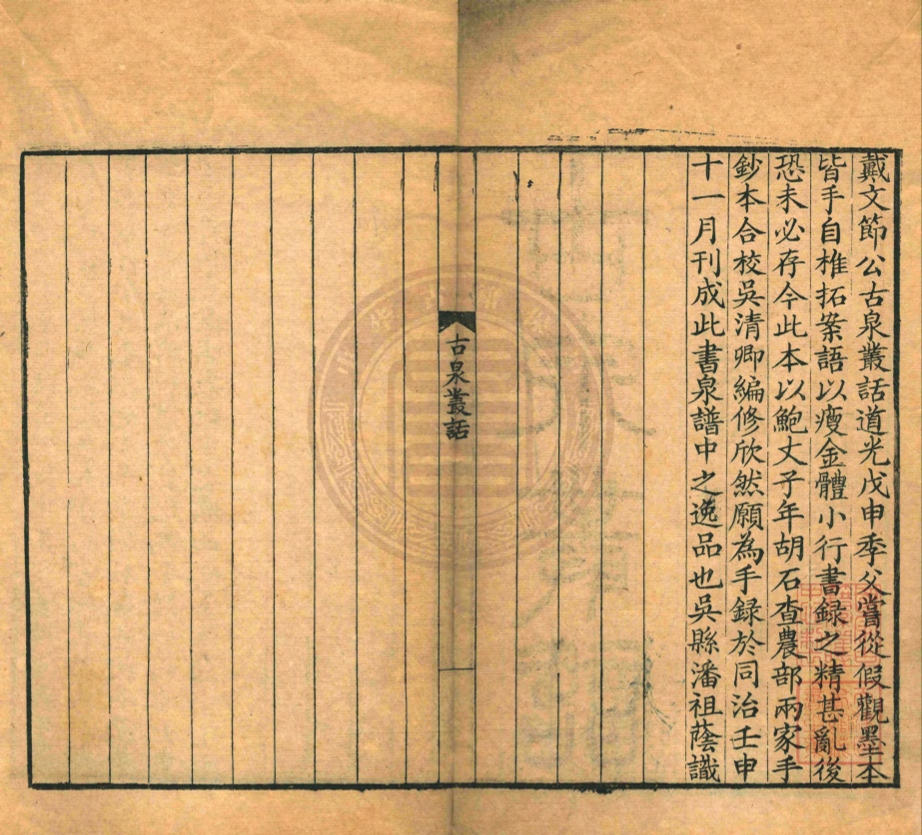 戴文節公古泉叢話道光戊申季父嘗從假觀墨本
皆手自椎拓案語以瘦金體小行書録之精甚亂後
恐未必存今此本以鮑丈子年胡石查農部兩家手
鈔本合校吳清卿編修欣然願為手録於同治壬申
十一月刊成此書泉譜中之逸品也吳縣潘祖蔭識
古泉叢話